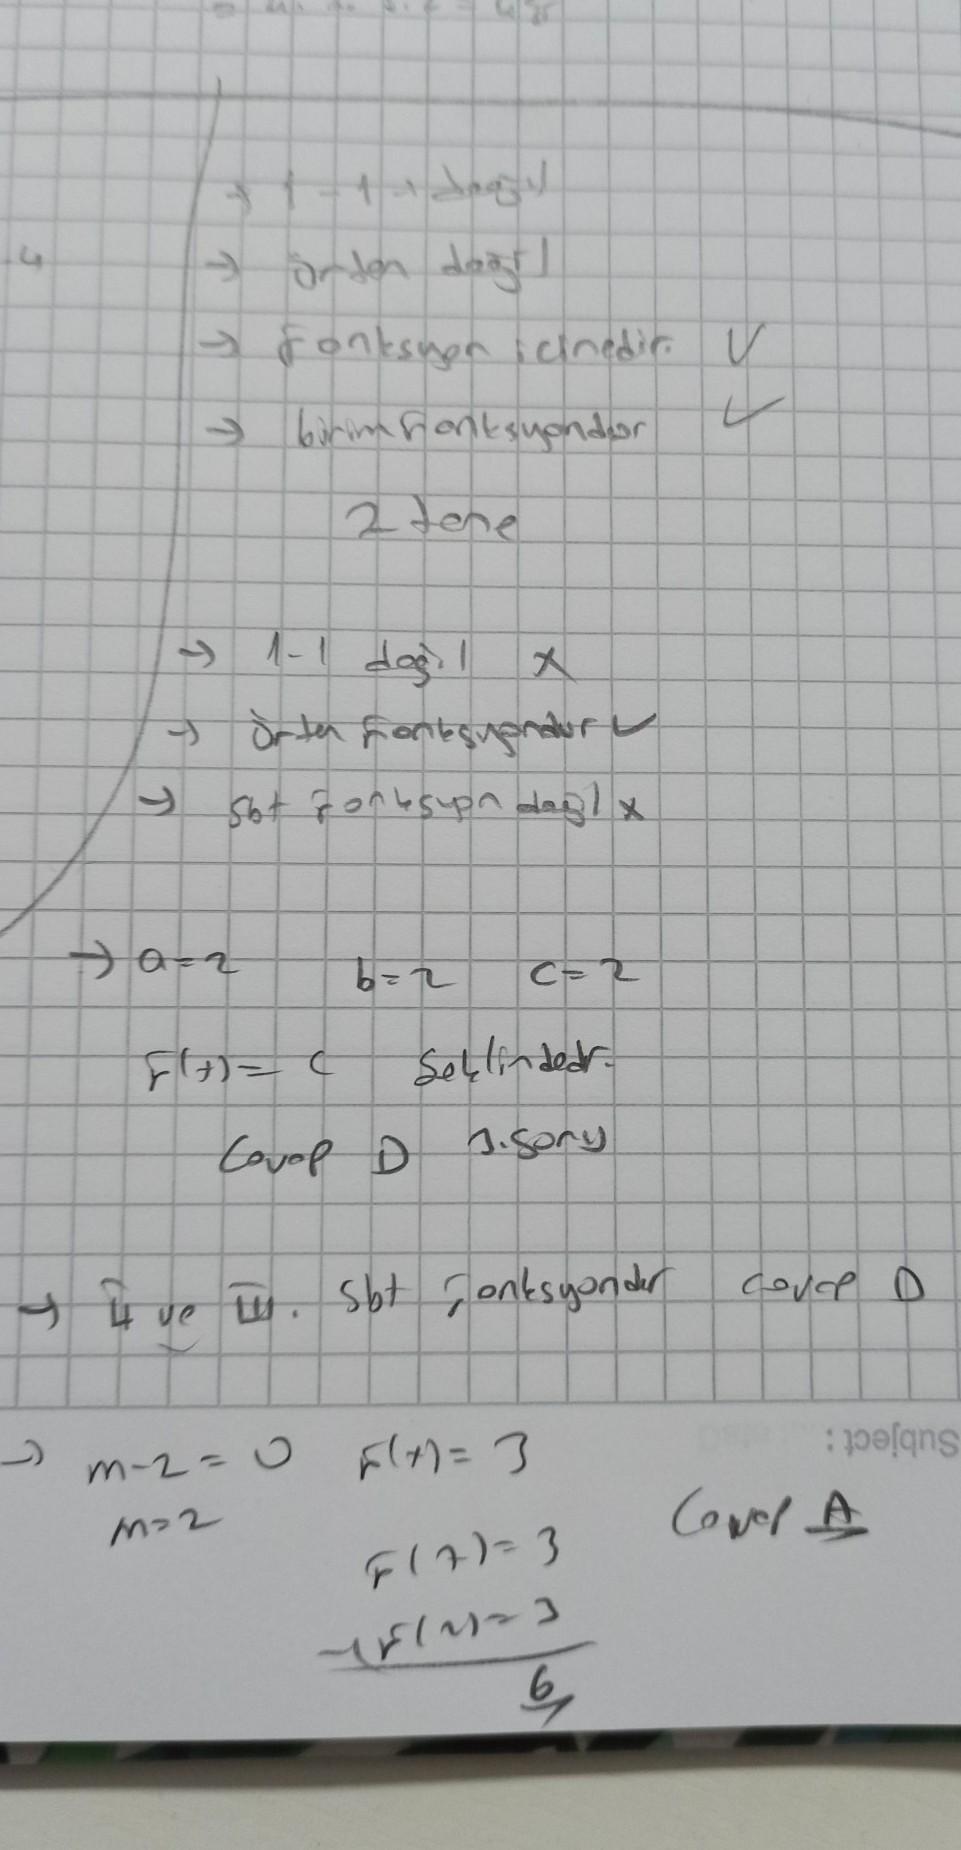 4
→ 1-1 değil
→ örten değil
→ fonksyon içinedir. ✓
→ birim fonksyondur ✓
2 tene
→ 1-1 değil x
→ örten fonksyondur ✓
→ Sbt fonksyon değil x
→ a=2 b=2 c=2
F(x)= c Seklindedr.
Cevap D 3.soru
→ II ve III. Sbt fonksyondur cevap D
→ m-2=0 F(x)= 3
Subject :
m=2
Cevap A
F(7)=3
F(2)=3
6